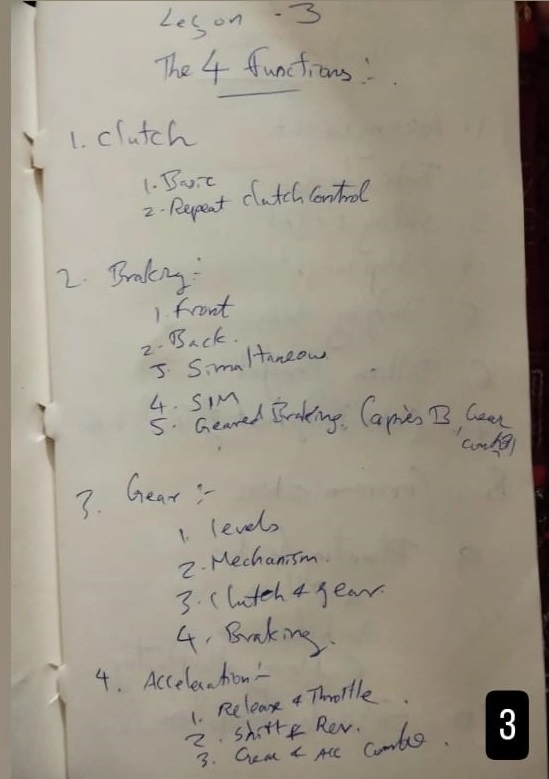 Lesson - 3
The 4 Functions:-
1. Clutch
1. Basic
2. Repeat clutch Control
2. Braking:-
1. Front
2. Back.
3. Simaltaneous
4. SIM
5. Geared Braking. B, Gear
3. Gear :-
1. levels
2. Mechanism.
3. Clutch & gear.
4. Braking.
4. Acceleration:-
1. Release & Throttle
2. Shift & Rev.
3. Gear & Acc Combo.
3